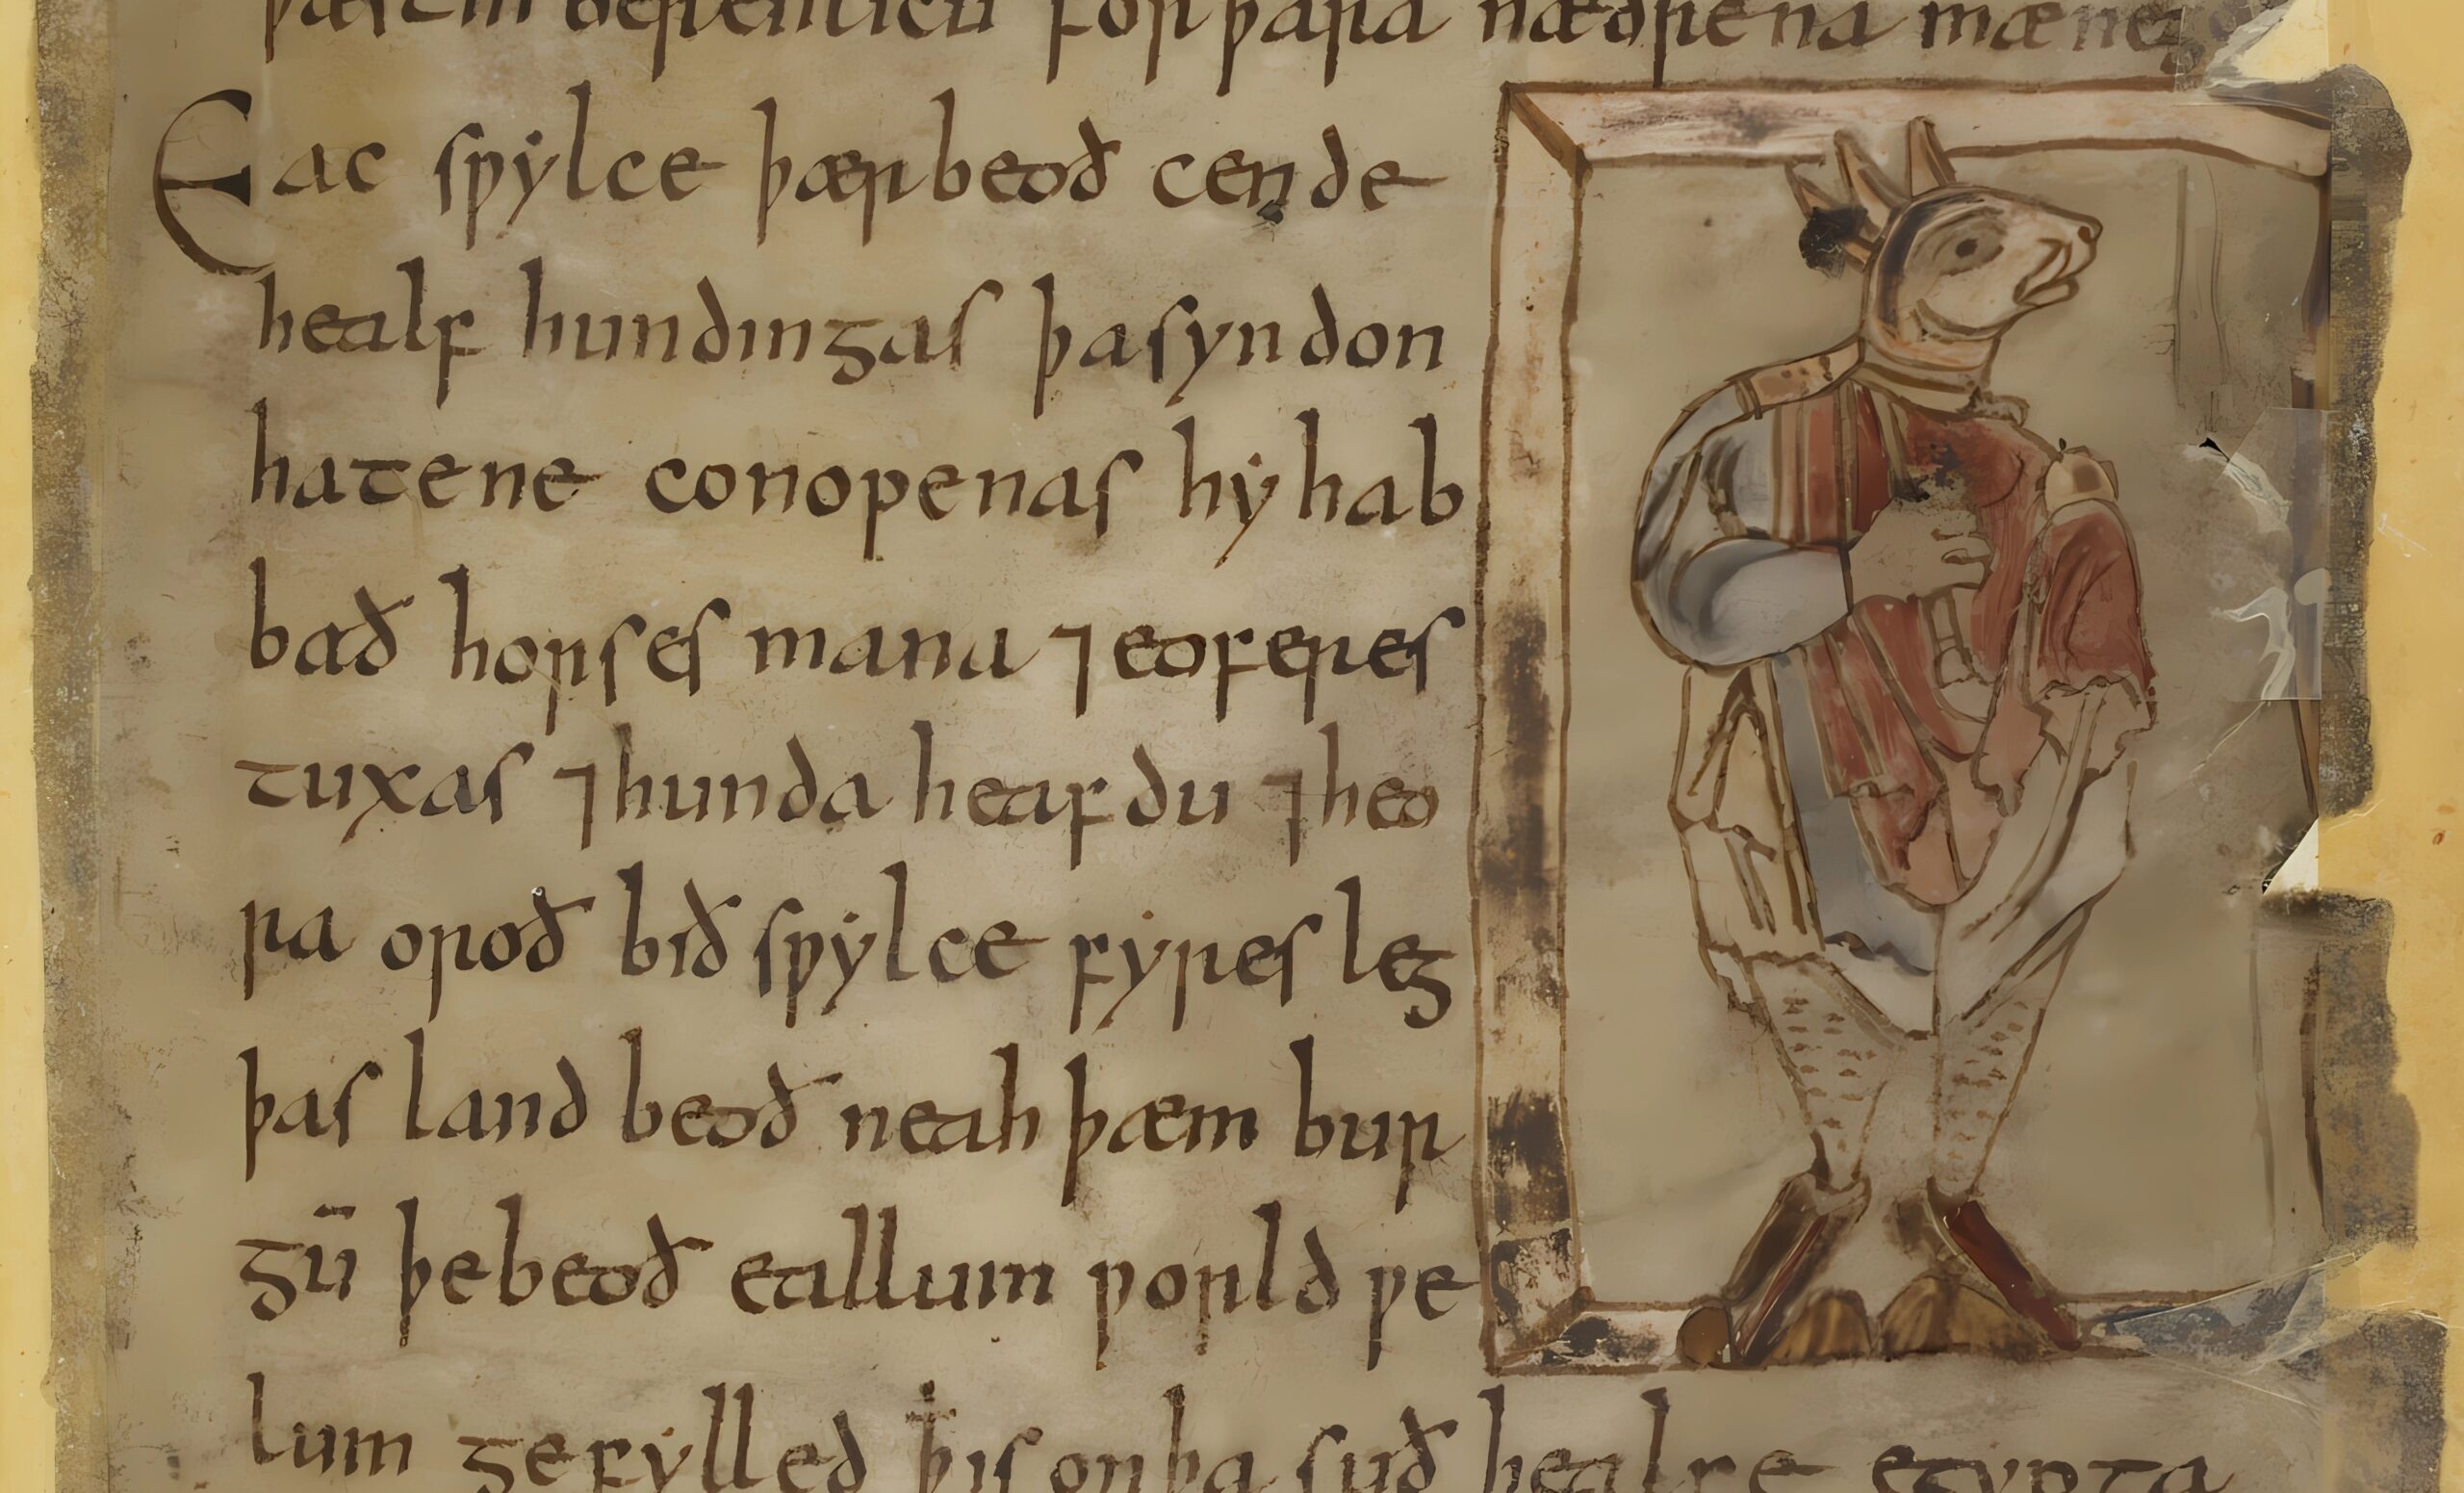 ƿæstm forþara nædrena mæneg
Eac sƿylce þærbeoð cende
healf hundingas þasyndon
hatene conopenas hy hab
bað horses mana ⁊ eoferes
tuxas ⁊ hunda heafdu ⁊ heo
ra oroð bið sƿylce fyres leg
þas land beoð neah þæm bur
gū þebeoð eallum ƿorld ƿe
lum gefylled ꝥ is onþa suð healfe egypta